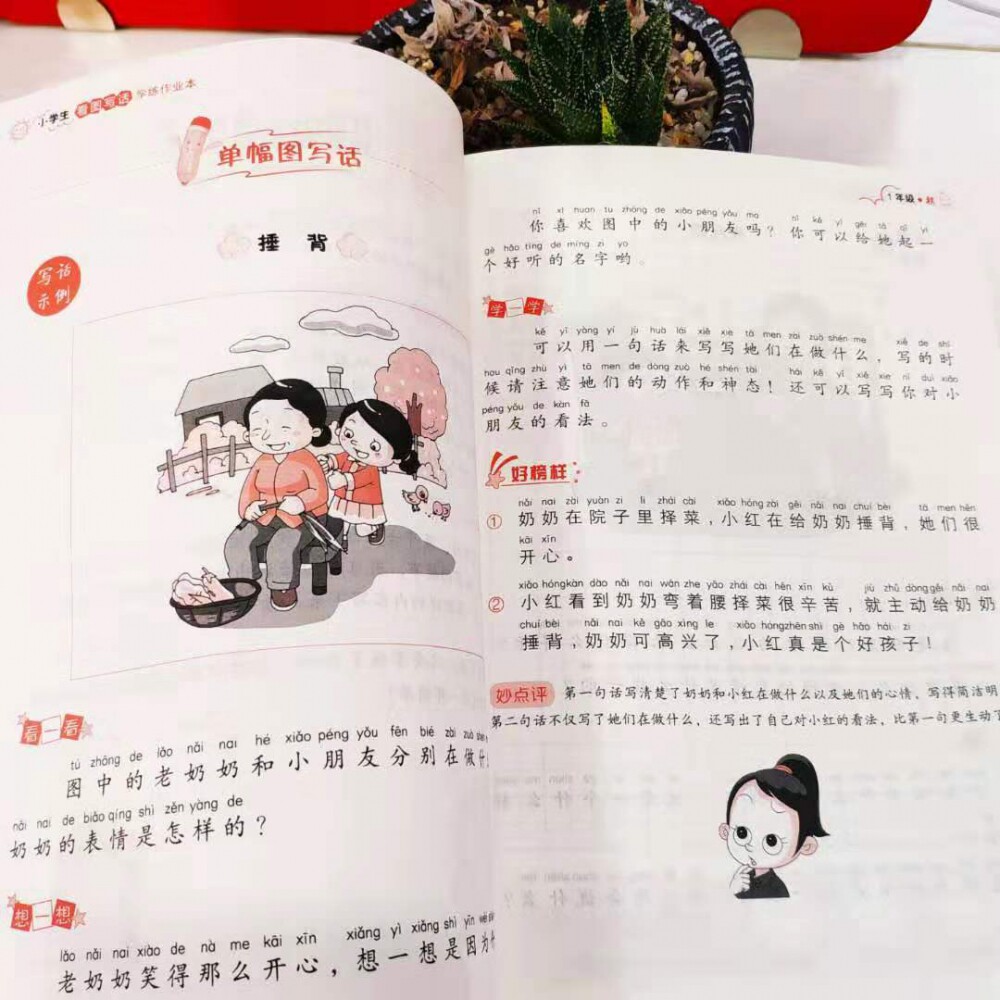 小学生 看图写话 学练作业本
单幅图写话
捶背
写话
示例
看一看
tú zhōng de lǎo nǎi nai hé xiǎo péng yǒu fēn bié zài zuò
图中的老奶奶和小朋友分别在做
nǎi nai de biǎo qíng shì zěn yàng de
奶奶的表情是怎样的？
想一想
lǎo nǎi nai xiào de nà me kāi xīn xiǎng yì xiǎng shì yīn
老奶奶笑得那么开心，想一想是因为
1年级
nǐ xǐ huan tú zhōng de xiǎo péng yǒu ma nǐ kě yǐ gěi tā qǐ yī
你喜欢图中的小朋友吗？你可以给她起一
gè hǎo tīng de míng zi yo
个好听的名字哟。
学一学
kě yǐ yòng yí jù huà lái xiě xiě tā men zài zuò shén me xiě de shí
可以用一句话来写写她们在做什么，写的时
hou qǐng zhù yì tā men de dòng zuò hé shén tài hái kě yǐ xiě xie nǐ duì xiǎo
候请注意她们的动作和神态！还可以写写你对小
péng yǒu de kàn fǎ
朋友的看法。
好榜样
nǎi nai zài yuàn zi li zhái cài xiǎo hóng zài gěi nǎi nai chuí bèi tā men hěn
① 奶奶在院子里择菜，小红在给奶奶捶背，她们很
kāi xīn
开心。
xiǎo hóng kàn dào nǎi nai wān zhe yāo zhái cài hěn xīn kǔ jiù zhǔ dòng gěi nǎi nai
② 小红看到奶奶弯着腰择菜很辛苦，就主动给奶奶
chuí bèi nǎi nai kě gāo xìng le xiǎo hóng zhēn shì gè hǎo hái zi
捶背，奶奶可高兴了，小红真是个好孩子！
妙点评 第一句话写清楚了奶奶和小红在做什么以及她们的心情，写得简洁明
第二句话不仅写了她们在做什么，还写出了自己对小红的看法，比第一句更生动了